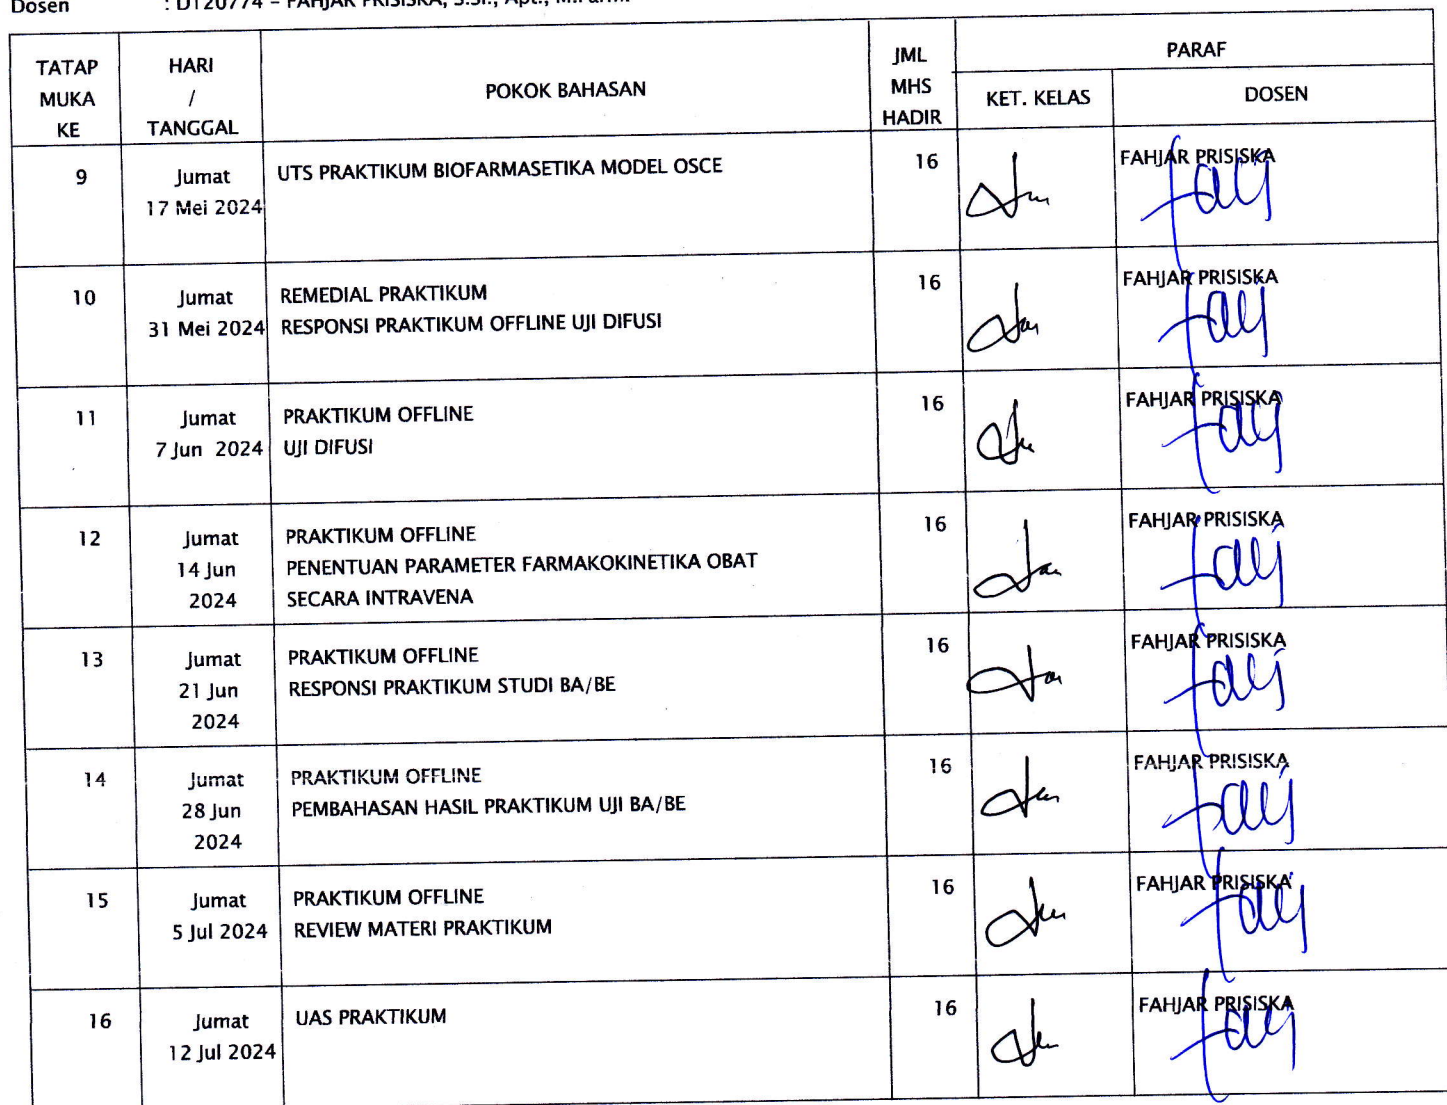 Dosen : DT20774 – FAHJAR PRISISKA, S.Si., Apt., M.Farm.
TATAP MUKA KE
HARI / TANGGAL
POKOK BAHASAN
JML MHS HADIR
PARAF
KET. KELAS
DOSEN
9
Jumat
17 Mei 2024
UTS PRAKTIKUM BIOFARMASETIKA MODEL OSCE
16
FAHJAR PRISISKA
10
Jumat
31 Mei 2024
REMEDIAL PRAKTIKUM
RESPONSI PRAKTIKUM OFFLINE UJI DIFUSI
16
FAHJAR PRISISKA
11
Jumat
7 Jun 2024
PRAKTIKUM OFFLINE
UJI DIFUSI
16
FAHJAR PRISISKA
12
Jumat
14 Jun
2024
PRAKTIKUM OFFLINE
PENENTUAN PARAMETER FARMAKOKINETIKA OBAT
SECARA INTRAVENA
16
FAHJAR PRISISKA
13
Jumat
21 Jun
2024
PRAKTIKUM OFFLINE
RESPONSI PRAKTIKUM STUDI BA/BE
16
FAHJAR PRISISKA
14
Jumat
28 Jun
2024
PRAKTIKUM OFFLINE
PEMBAHASAN HASIL PRAKTIKUM UJI BA/BE
16
FAHJAR PRISISKA
15
Jumat
5 Jul 2024
PRAKTIKUM OFFLINE
REVIEW MATERI PRAKTIKUM
16
FAHJAR PRISISKA
16
Jumat
12 Jul 2024
UAS PRAKTIKUM
16
FAHJAR PRISISKA